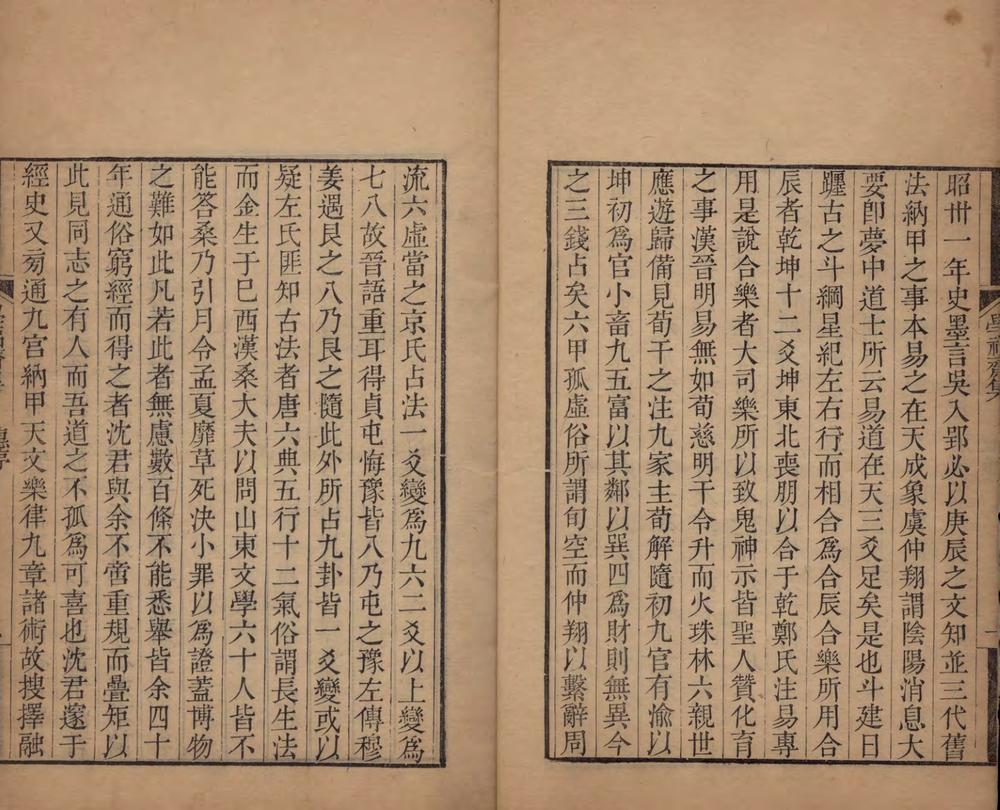 昭丗一年史墨言吳入郢必以庚辰之文知並三代舊
法納甲之事本易之在天成象虞仲翔謂陰陽消息大
要卽夢中道士所云易道在天三爻足矣是也斗建日
躔古之斗綱星紀左右行而相合爲合辰合樂所用合
辰者乾坤十二爻坤東北喪朋以合于乾鄭氏注易專
用是說合樂者大司樂所以致鬼神示皆聖人贊化育
之事漢晉明易無如荀慈明干令升而火珠林六親世
應遊歸備見荀干之注九家主荀解隨初九官有渝以
坤初爲官小畜九五富以其鄰以巽四爲財則無異今
之三錢占矣六甲孤虛俗所謂旬空而仲翔以繫辭周
流六虛當之京氏占法一爻變爲九六二爻以上變爲
七八故晉語重耳得貞屯悔豫皆八乃屯之豫左傳穆
姜遇艮之八乃艮之隨此外所占九卦皆一爻變或以
疑左氏匪知古法者唐六典五行十二氣俗謂長生法
而金生于巳西漢桑大夫以問山東文學六十人皆不
能答桑乃引月令孟夏靡草死決小罪以爲證蓋博物
之難如此凡若此者無慮數百條不能悉舉皆余四十
年通俗窮經而得之者沈君與余不啻重規而疊矩以
此見同志之有人而吾道之不孤爲可喜也沈君邃于
經史又旁通九宮納甲天文樂律九章諸術故搜擇融